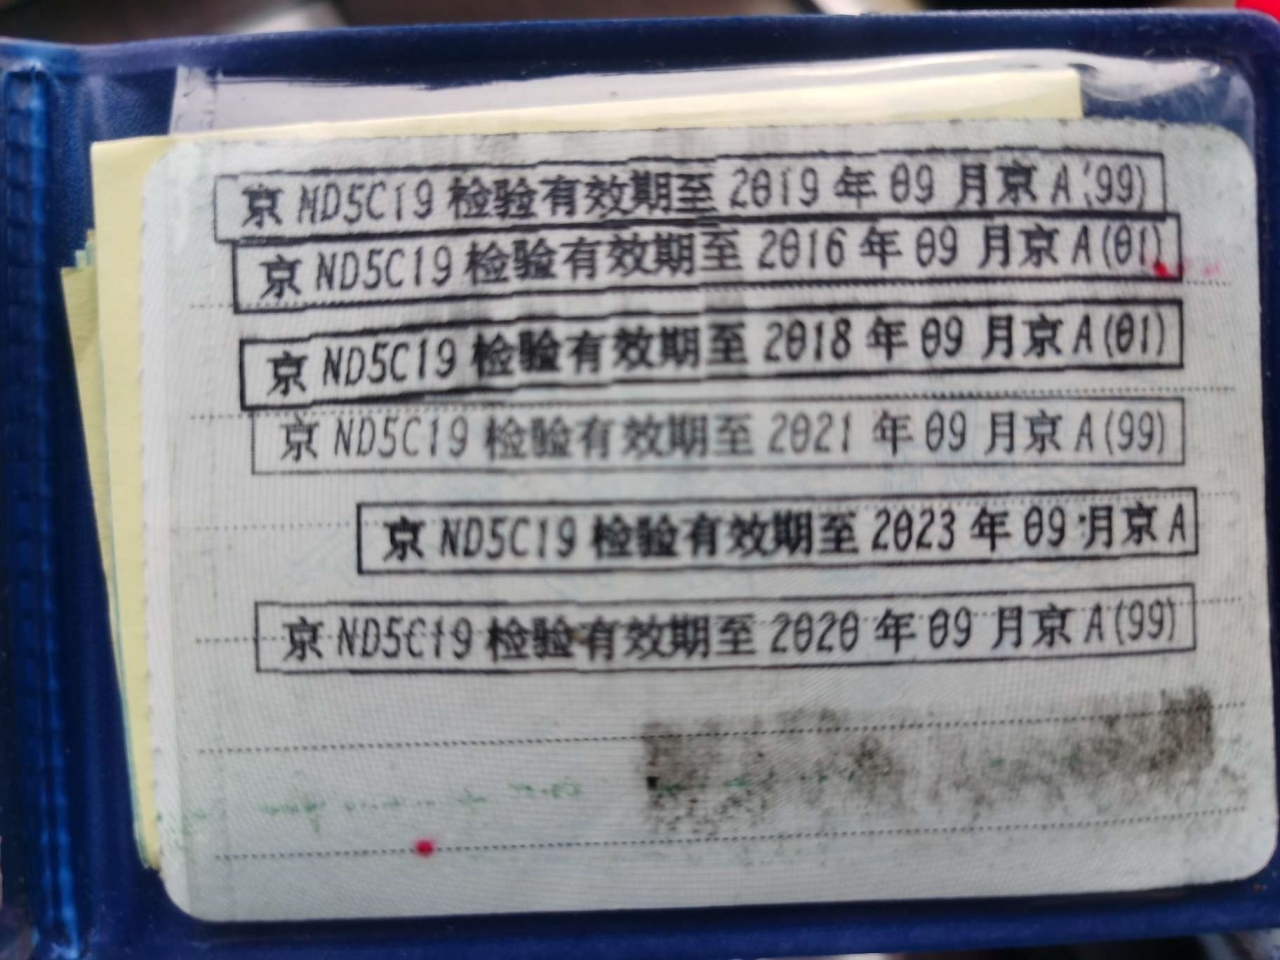 京 ND5C19 检验有效期至 2019 年 09 月京 A(99)
京 ND5C19 检验有效期至 2016 年 09 月京 A(01)
京 ND5C19 检验有效期至 2018 年 09 月京 A(01)
京 ND5C19 检验有效期至 2021 年 09 月京 A(99)
京 ND5C19 检验有效期至 2023 年 09 月京 A
京 ND5C19 检验有效期至 2020 年 09 月京 A(99)